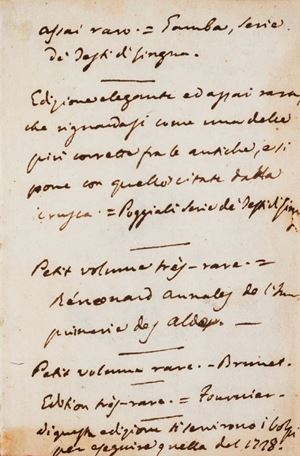 assai raro. = Gamba, Serie
de' Testi di lingua.
Edizione elegante ed assai rara
che riguardasi come una delle
più corrette fra le antiche, e si
pone con quelle citate dalla
Crusca. = Poggiali Serie de' Testi di ling
Petit volume très-rare. =
Rénouard Annales de l'Im
primerie des Aldes. —
Petit volume rare. - Brunet.
Edition très-rare. = Fournier.
di questa edizione si servirono i Volpi
per eseguire quella del 1728.